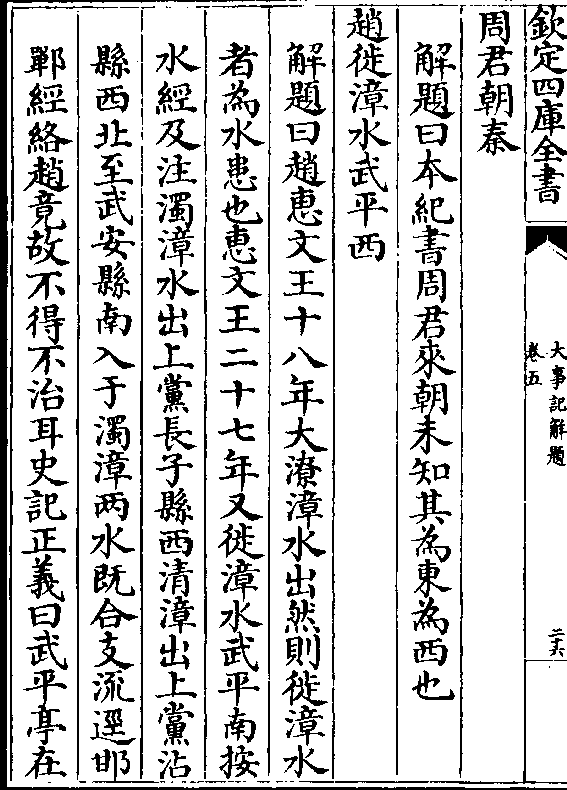 欽定四庫全書
大事記解題
卷五
二十六
周君朝秦
解題曰本紀書周君來朝未知其為東為西也
趙徙漳水武平西
解題曰趙惠文王十八年大潦漳水出然則徙漳水
者為水患也惠文王二十七年又徙漳水武平南按
水經及注濁漳水出上黨長子縣西清漳出上黨沾
縣西北至武安縣南入于濁漳两水既合支流逕邯
鄲經絡趙竟故不得不治耳史記正義曰武平亭在